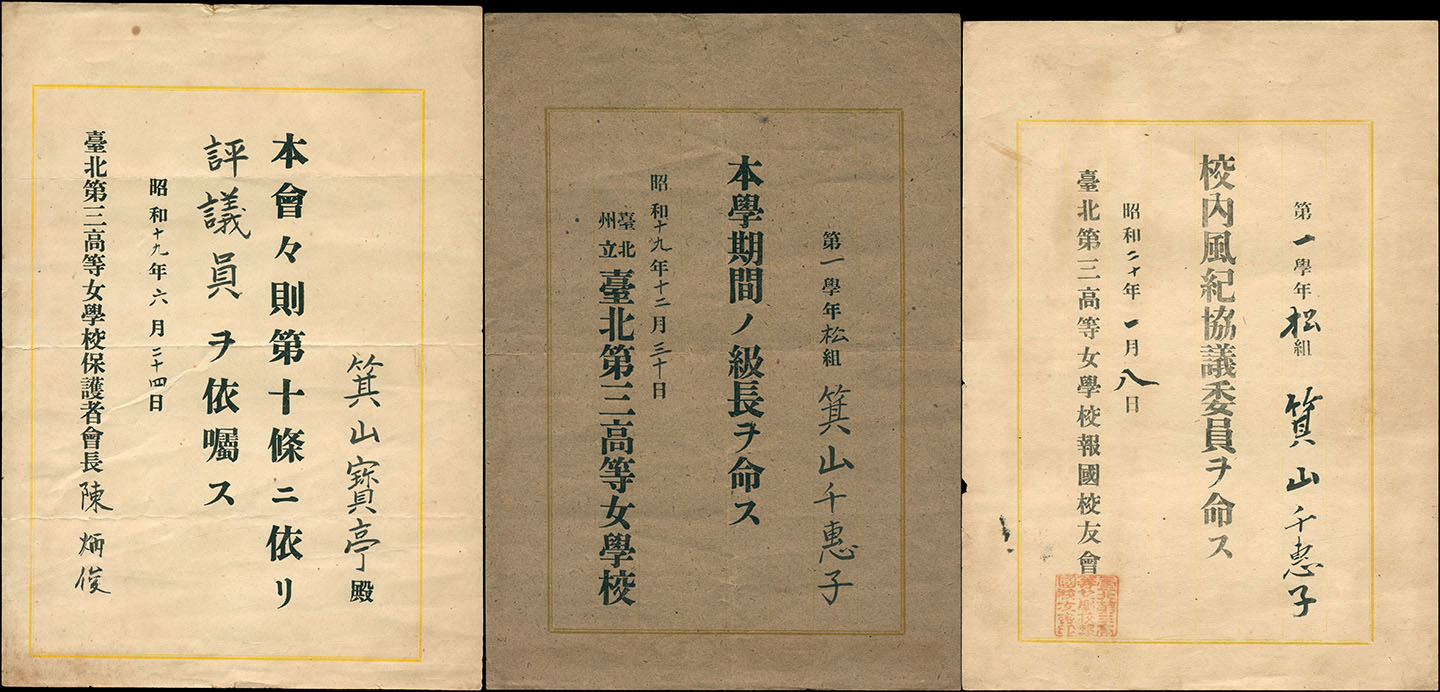 箕山寶亭殿
本會々則第十條ニ依リ
評議員ヲ依囑ス
昭和十九年六月二十四日
臺北第三高等女學校保護者會長陳炳俊
第一學年松組 箕山千惠子
本學期間ノ級長ヲ命ス
昭和十九年十二月三十日
臺北州立臺北第三高等女學校
第一學年松組 箕山千惠子
校內風紀協議委員ヲ命ス
昭和二十年一月八日
臺北第三高等女學校報國校友會